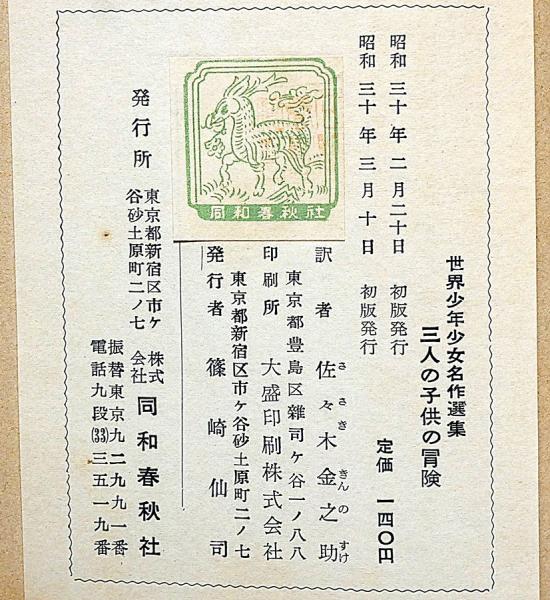 世界少年少女名作選集
三人の子供の冒険
定価 一四〇円
昭和三十年二月二十日 初版発行
昭和三十年三月十日 初版発行
同和春秋社
訳者 佐々木金之助
さ さ き きん の すけ
東京都豊島区雑司ヶ谷一ノ八八
印刷所 大盛印刷株式会社
東京都新宿区市ケ谷砂土原町二ノ七
発行者 篠崎仙司
発行所
東京都新宿区市ケ
谷砂土原町二ノ七
株式会社 同和春秋社
振替東京九二九九一番
電話九段(33)三五一九番